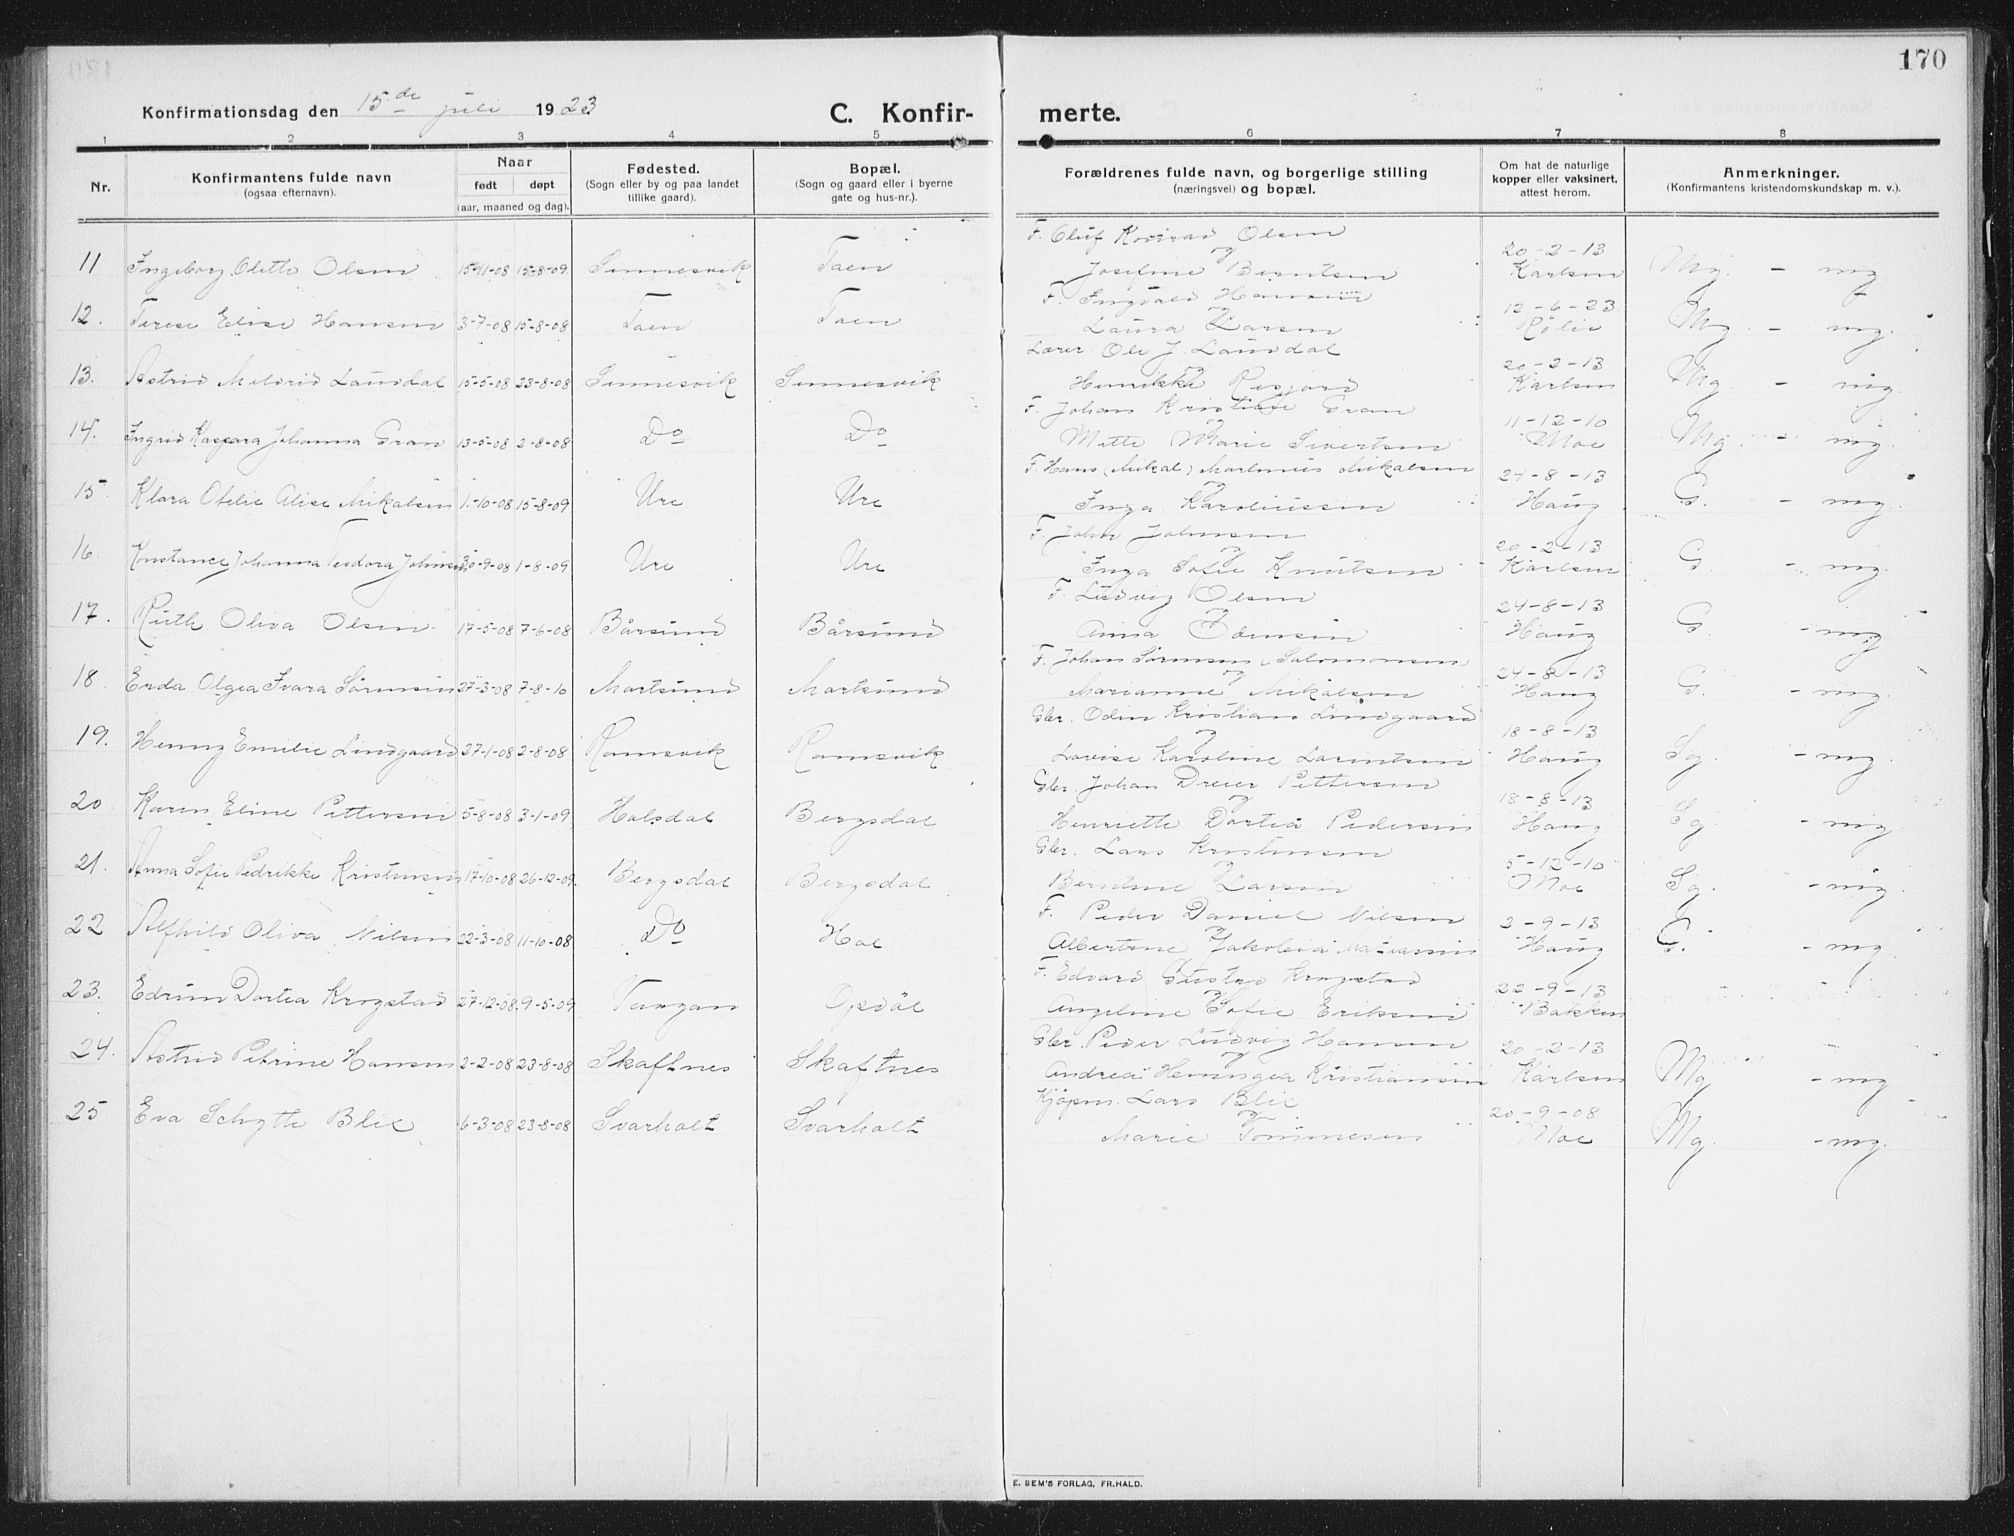 170
Konfirmationsdag den 15de juli 1923 C. Konfir- merte.
1 2 3 4 5 6 7 8
Nr. Konfirmantens fulde navn (ogsaa efternavn). Naar født døpt (aar, maaned og dag). Fødested. (Sogn eller by og paa landet tillike gaard). Bopæl. (Sogn og gaard eller i byerne gate og hus-nr.). Forældrenes fulde navn, og borgerlige stilling (næringsvei) og bopæl. Om hat de naturlige kopper eller vaksinert, attest herom. Anmerkninger. (Konfirmantens kristendomskundskap m. v.).
F. Oluf Konrad Olsen
11 Ingeborg Olette Olsen 15-11-08 15-8-09 Sennesvik Taen og Josefine Berntsen 20-2-13 Karlsen Mg. - mg
F. Ingvald Hansen
12. Terese Elise Hansen 3-7-08 15-8-08 Taen Taen og Laura Larsen 12-6-23 Rølie Mg - mg.
Lærer Ole J. Lausdal
13. Astrid Mildrid Lausdal 15-5-08 23-8-08 Sennesvik Sennesvik og Henrikke Risjord 20-2-13 Karlsen Mg - mg.
F. Johan Kristian Gran
14. Ingrid Kaspara Johanna Gran 13-5-08 2-8-08 Do Do og Mette Marie Sivertsen 11-12-10 Moe Mg - mg.
F. Hans (Mikal) Martinus Mikalsen
15. Klara Otelie Alise Mikalsen 1-10-08 15-8-09 Ure Ure og Inga Karoliussen 24-8-13 Haug G. - mg.
F. John Johnsen
16. Konstance Johanna Teodora Johnsen 30-9-08 1-8-09 Ure Ure og Inga Sofie Knutsen 20-2-13 Karlsen G. - mg.
F. Ludvig Olsen
17. Ruth Oliva Olsen 17-5-08 7-6-08 Bårsund Bårsund og Anna Jensen 24-8-13 Haug G. - mg
F. Johan Sørensen (Salomonsen
18. Erda Olgea Ivara Sørensen 27-3-08 7-8-10 Mortsund Mortsund og Marianne Mikalsen 24-8-13 Haug G. - mg.
Gbr. Odin Kristian Lindgaard
19. Henny Emilie Lindgaard 27-1-08 2-8-08 Ramsvik Ramsvik og Lovise Karoline Larentsen 18-8-13 Haug Sg - mg.
Gbr. Johan Dreier Pettersen
20. Karen Eline Pettersen 5-8-08 3-1-09 Holsdal Bergsdal og Henriette Dortea Pedersen 18-8-13 Haug Sg - mg
Gbr. Lars Kristensen
21. Anna Sofie Pedrikke Kristensen 17-10-08 26-12-09. Bergsdal Bergsdal og Berntine Larsen 5-12-10 Moe Sg. - mg
F. Peder Daniel Nilsen
22 Alfhild Oliva Nilsen 22-3-08 11-10-08 Do Hol og Albertine Jakobia 2-9-13 Haug G. - mg
F. Edvard Gustav Krogstad
23. Dortea Krogstad 27-12-08 9-5-09 Opdøl og Angeline Sofie Eriksen 22-9-13 Bakken
Gbr. Peder Ludvig Hansen
24. Astrid Petrine Hansen 2-2-08 23-8-08 Skaftnes Skaftnes og Andrea Henningea Kristiansen 20-2-13 Karlsen Mg - mg
Kjøpm. Lars Blix
25 Eva Schytte Blix 6-3-08 23-8-08 Svarholt Svarholt og Marie Tommesen 20-9-08 Moe Mg. - mg.
E. SEM'S FORLAG, FR.HALD.